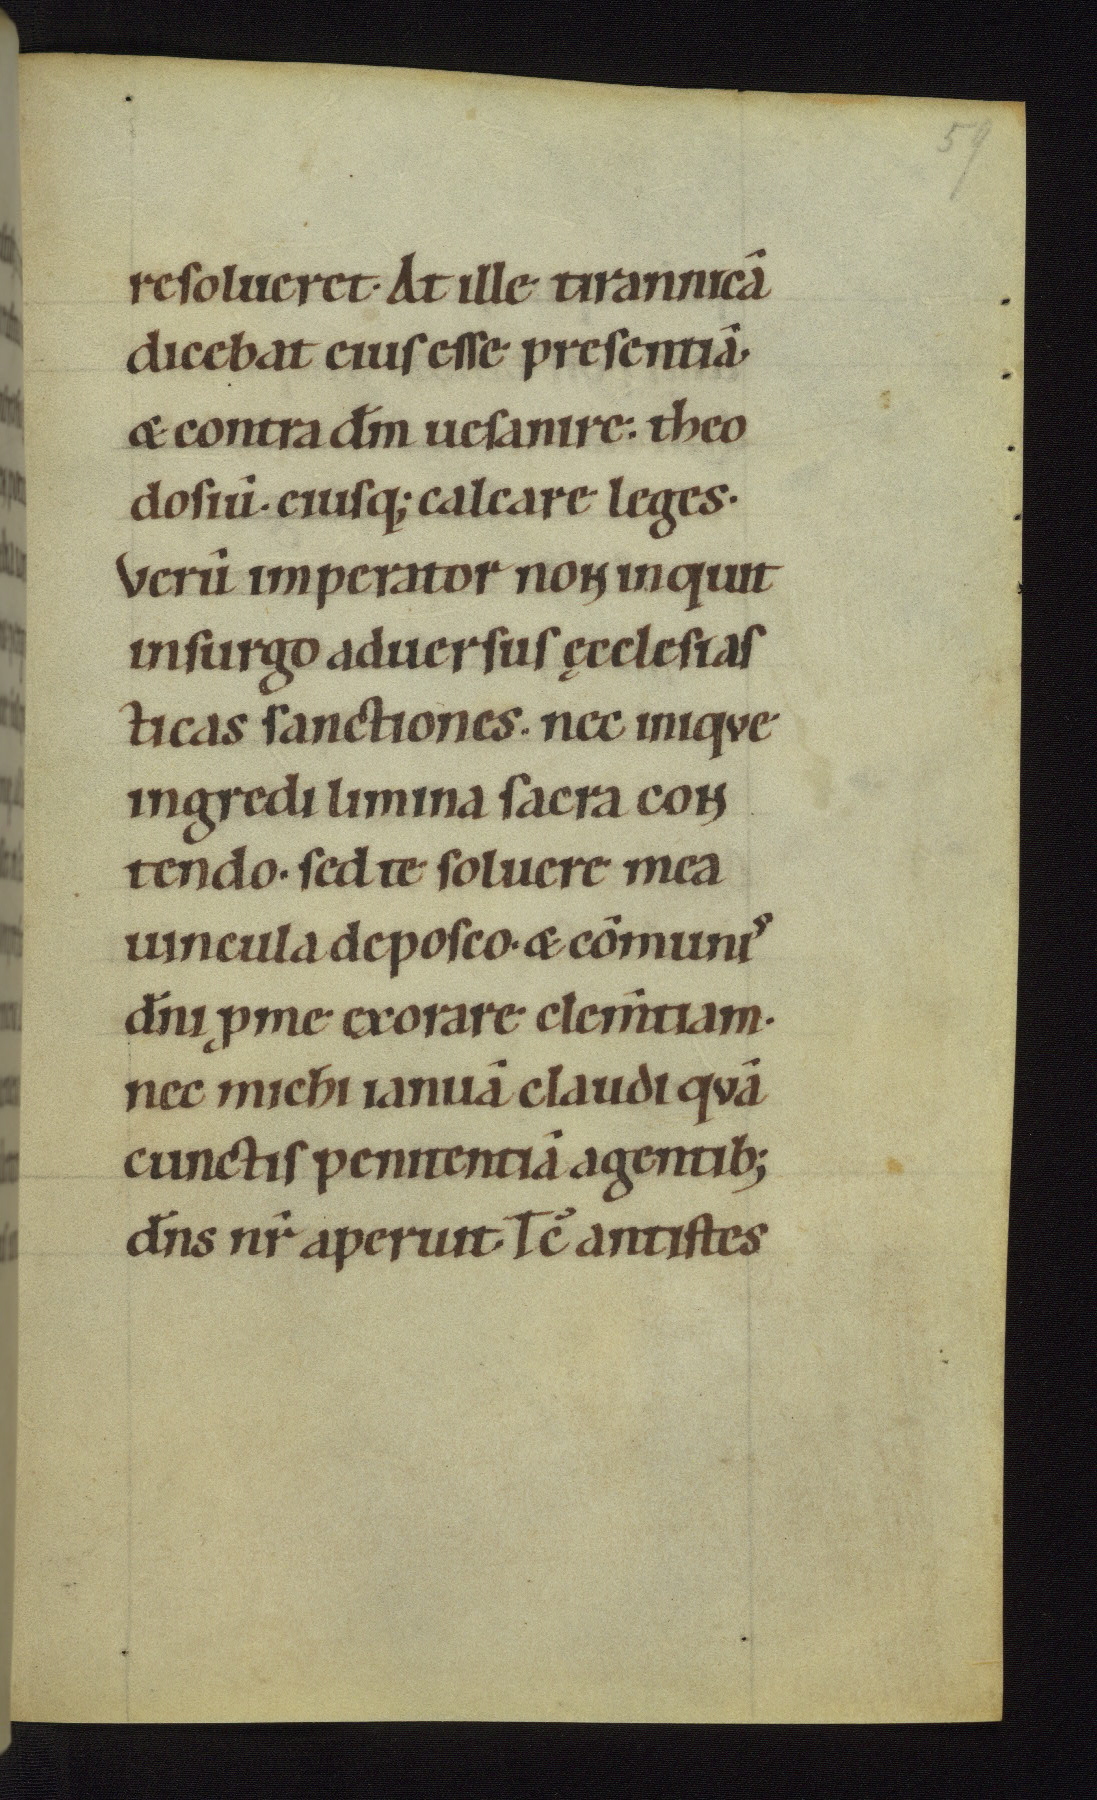 59
resolueret. At ille tirannicā
dicebat eius esse presentiā.
& contra dm̄ uesanire. theo
dosiū. eiusq; calcare leges.
Verū imperator non inquit
insurgo aduersus ęcclesias
ticas sanctiones. nec inique
ingredi limina sacra con
tendo. sed te soluere mea
uincula deposco. & cōmunis
dn̄i p me exorare clem̄tiam.
nec michi ianuā claudi quā
cunctis penitentiā agentib;
dn̄s nr̄ aperuit. Tc̄ antistes